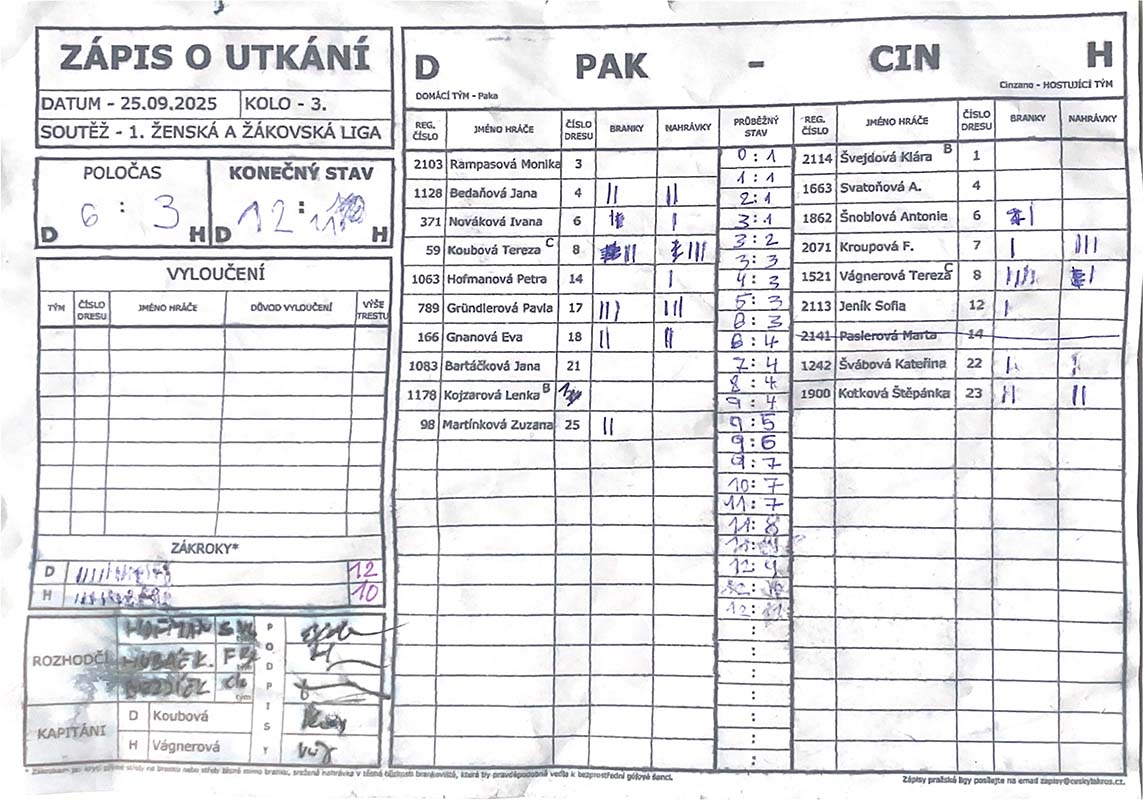 ZÁPIS O UTKÁNÍ
DATUM - 25.09.2025 KOLO - 3.
SOUTĚŽ - 1. ŽENSKÁ A ŽÁKOVSKÁ LIGA
POLOČAS KONEČNÝ STAV
6 : 3 12 :
D H D H
VYLOUČENÍ
TÝM ČÍSLO DRESU JMÉNO HRÁČE DŮVOD VYLOUČENÍ VÝŠE TRESTU
ZÁKROKY*
D 12
H 10
ROZHODČÍ PODPISY
HOFMAN
HUBÁČEK
tým
KAPITÁNI
D Koubová
H Vágnerová
D PAK - CIN H
DOMÁCÍ TÝM - Paka Cinzano - HOSTUJÍCÍ TÝM
REG. ČÍSLO JMÉNO HRÁČE ČÍSLO DRESU BRANKY NAHRÁVKY PRŮBĚŽNÝ STAV REG. ČÍSLO JMÉNO HRÁČE ČÍSLO DRESU BRANKY NAHRÁVKY
2103 Rampasová Monika 3
1128 Bedaňová Jana 4
371 Nováková Ivana 6
59 Koubová Tereza C 8
1063 Hofmanová Petra 14
789 Gründlerová Pavla 17
166 Gnanová Eva 18
1083 Bartáčková Jana 21
1178 Kojzarová Lenka B
98 Martínková Zuzana 25
0 : 1
1 : 1
2 : 1
3 : 1
3 : 2
3 : 3
4 : 3
5 : 3
6 : 3
6 : 4
7 : 4
8 : 4
9 : 4
9 : 5
9 : 6
9 : 7
10 : 7
11 : 7
11 : 8
12 : 9
2114 Švejdová Klára B 1
1663 Svatoňová A. 4
1862 Šnoblová Antonie 6
2071 Kroupová F. 7
1521 Vágnerová Tereza C 8
2113 Jeník Sofia 12
2141 Paslerová Marta 14
1242 Švábová Kateřina 22
1900 Kotková Štěpánka 23
Zápisy pražské ligy posílejte na email zapisy@ceskylakros.cz.